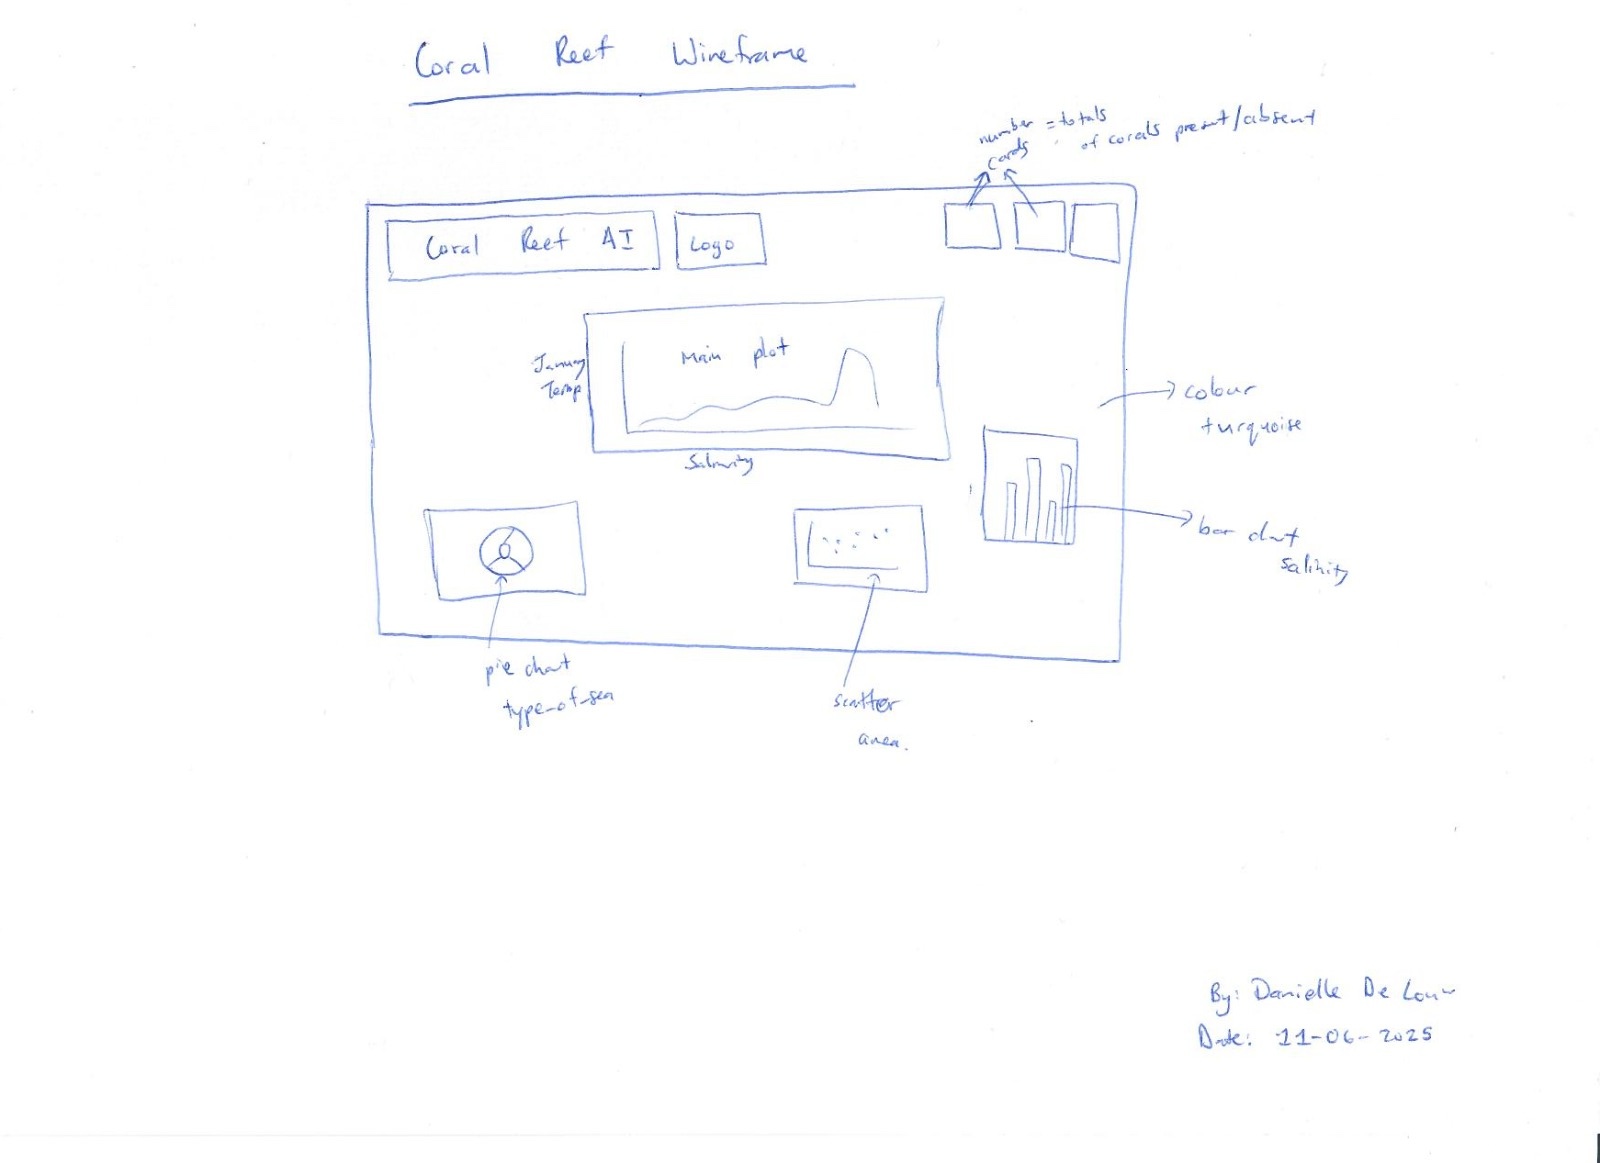 Coral Reef Wireframe
number = totals
cards of corals present/absent
Coral Reef AI
Logo
Main plot
January
Temp
Salinity
colour
turquoise
bar chart
salinity
pie chart
type-of-sea
scatter
area.
By: Danielle De Louw
Date: 11-06-2025